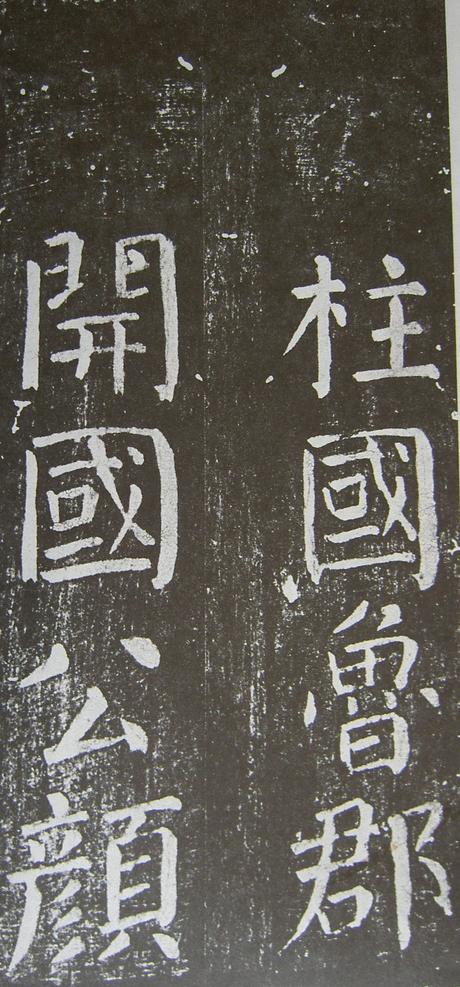 柱國魯郡
開國公顔